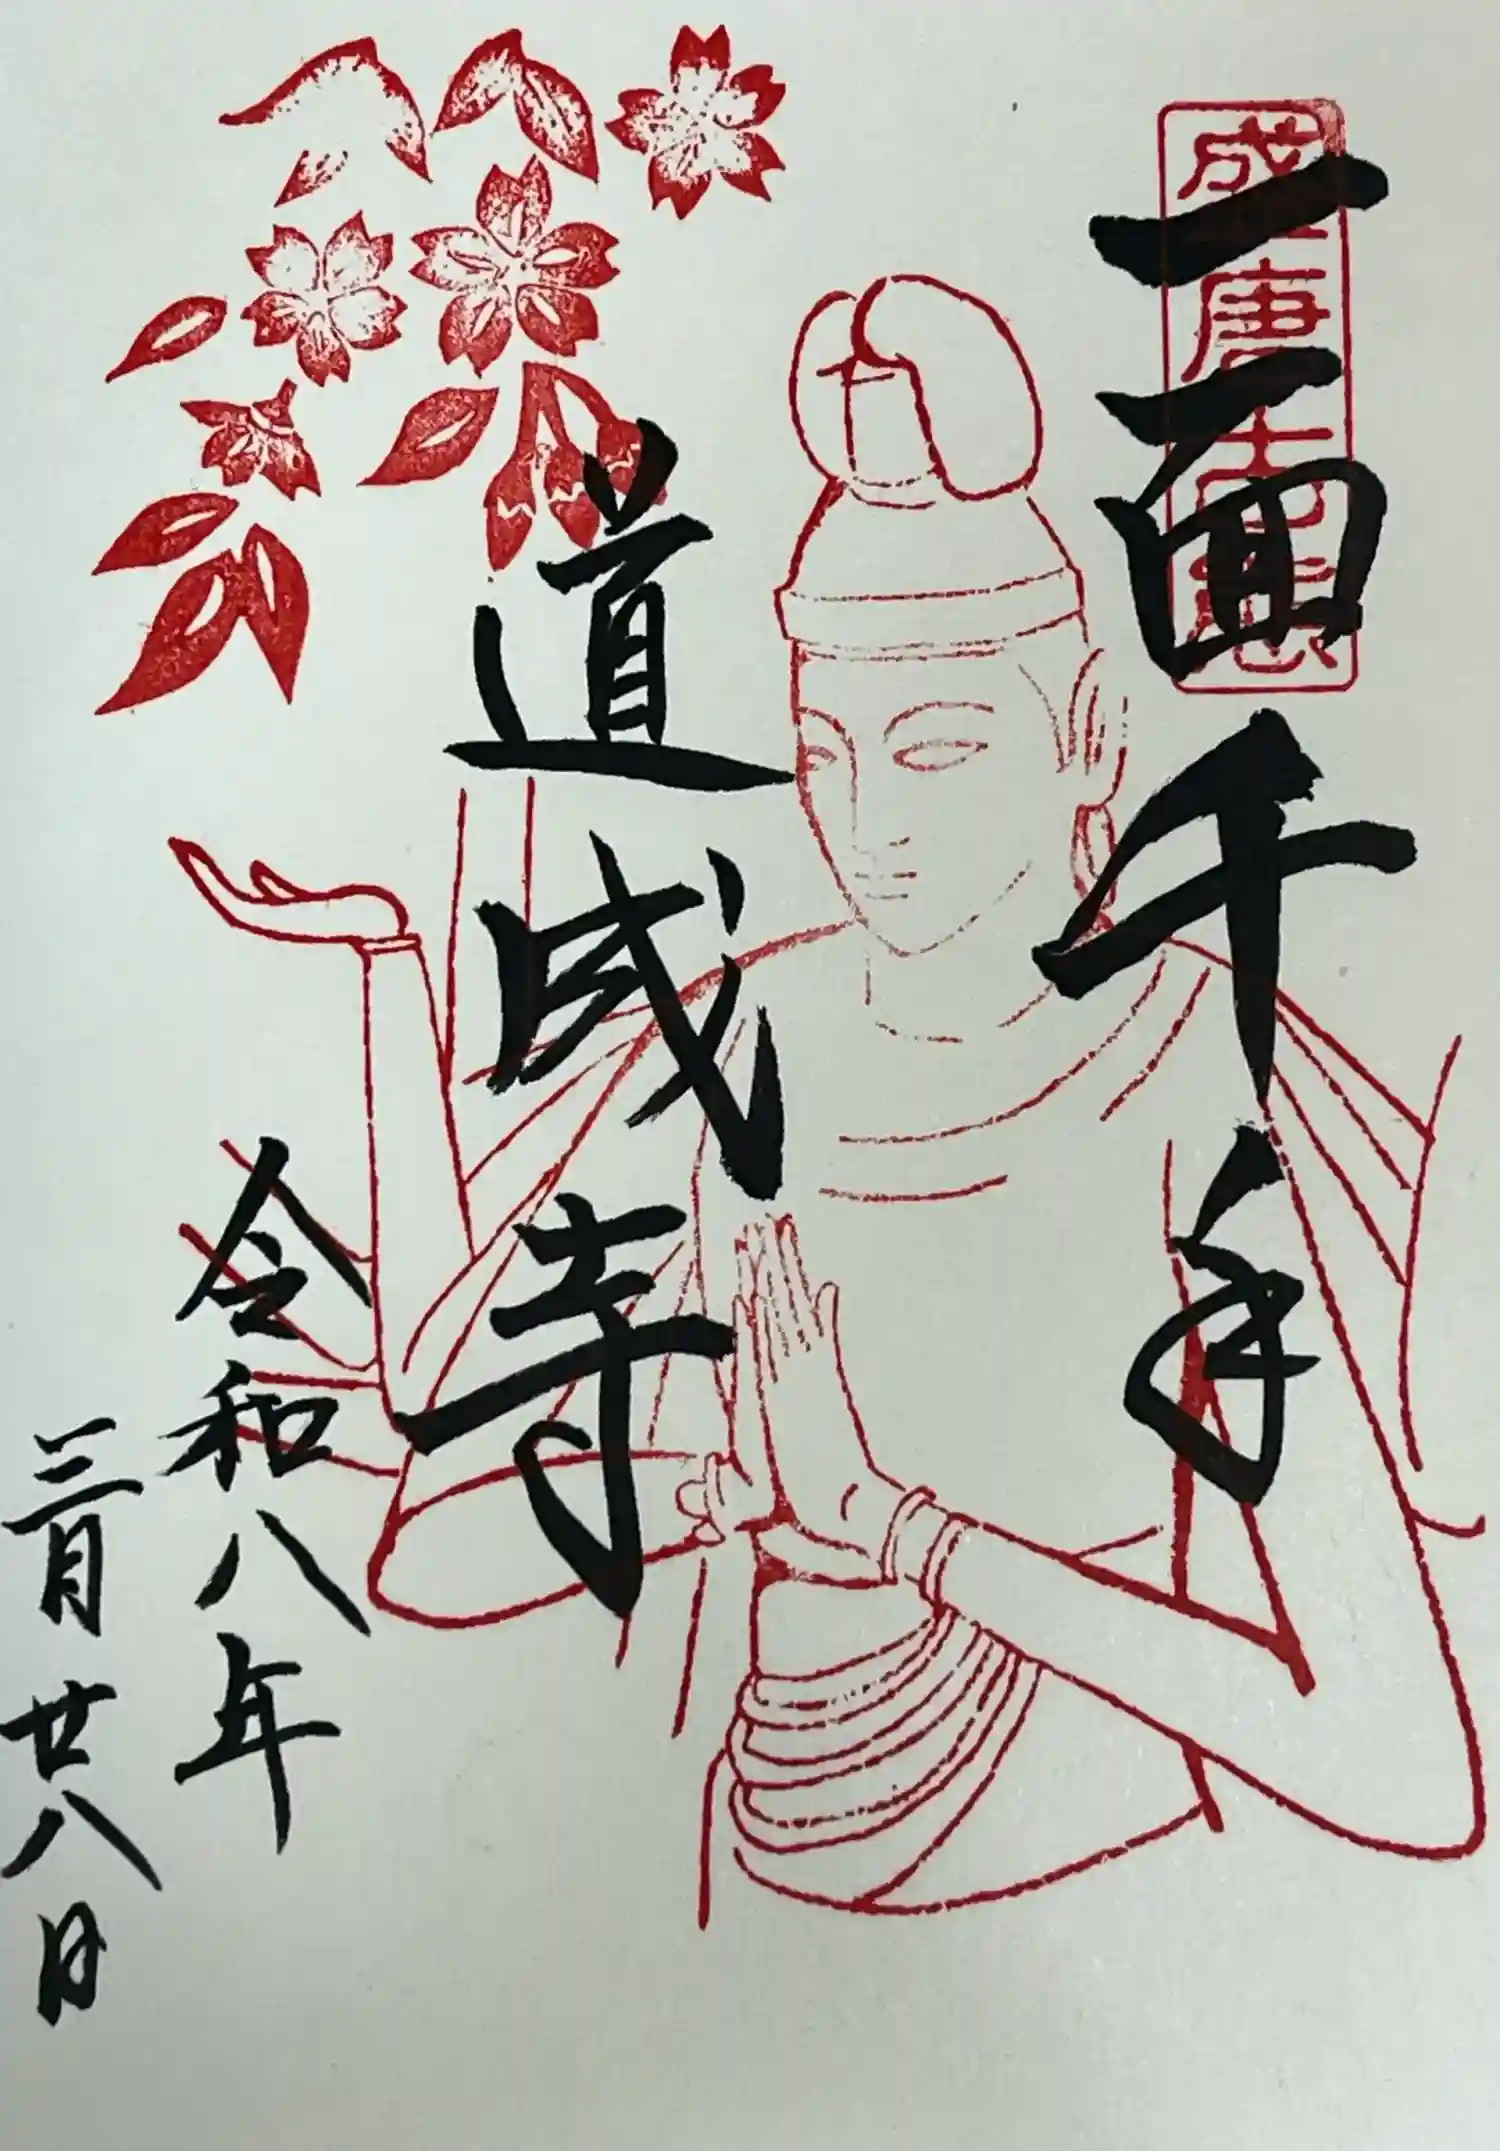 一面千手
道成寺
令和八年
三月廿八日